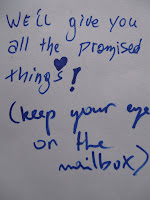 We'll give you
all the promised
things!
(keep your eye
on the
mailbox)